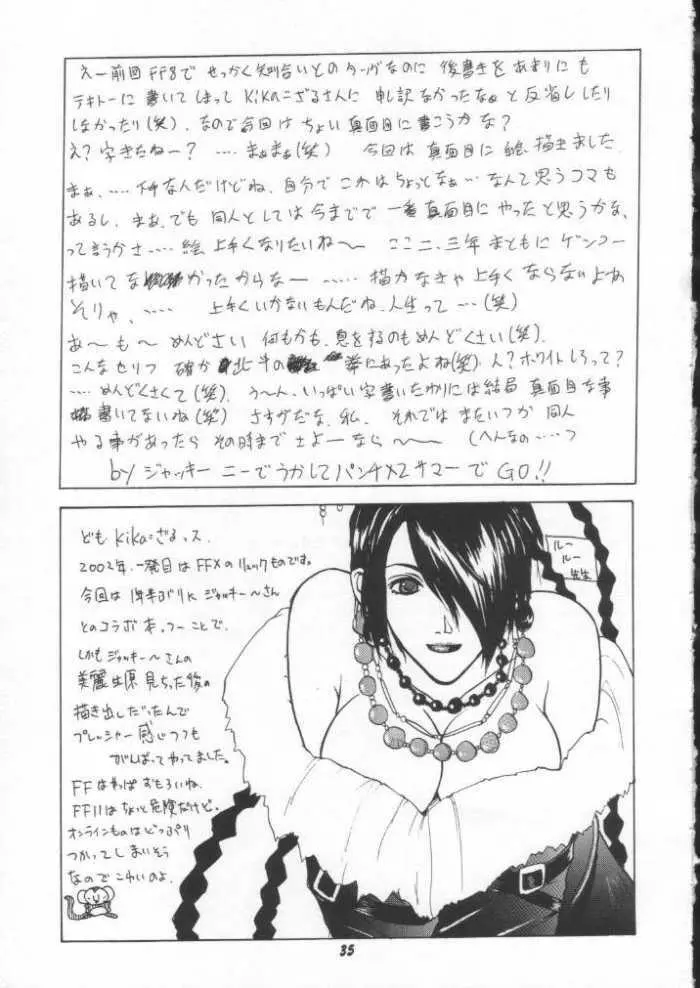 えー前回FF8で せっかく知り合いとのタッグなのに 後書きをあまりにも
テキトーに書いてしまって Kikaこざるさんに 申し訳なかったなぁと反省したり
しなかったり(笑)、なので今回はちょい真面目に書こうかな?
え?字きたねー? ‥‥まぁまぁ(笑) 今回は真面目に絵、描きました
まぁ、‥‥下手なんだけどね、自分でこれはちょっとなぁ‥なんて思うコマも
あるし、まぁ、でも 同人としては今までで一番真面目にやったと思うかな、
って言うかさ‥‥絵 上手くなりたいね〜 ここ二、三年まともにゲンコー
描いてなかったからなー ‥‥‥描かなきゃ上手くならないよね
そりゃ、‥‥‥ 上手くいかないもんだね、人生って‥‥(笑)
あ〜も〜 めんどさい 何もかも、息をするのもめんどくさい(笑)、
こんなセリフ 確か 北斗の 拳にあったよね(笑)、ん?ホワイトしろって?
‥‥めんどくさくて(笑)、う〜ん、いっぱい字書いたわりには結局真面目な事
書いてないね(笑) さすがだな、私、それでは またいつか 同人
やる事があったら その時まで さよーなら〜〜 (へんなの‥‥っ
by ジャッキー ニーでうかしてパンチ×2サマーで GO!!
ども Kikaこざるっス
2002年、一発目はFFXのリュックものです。
今回は 1年半ぶりに ジャッキー〜さん
とのコラボ本、つーことで、
しかもジャッキー〜さんの
美麗生原見ちった後の
描き出しだったんで
プレッシャー感じつつも
がんばってやってました。
FFはやっぱおもろいね、
FF11はちょっと危険だけど。
オンラインものはどっぷり
つかってしまいそう
なのでこわいのよ、
ルー
ルー
先生
35